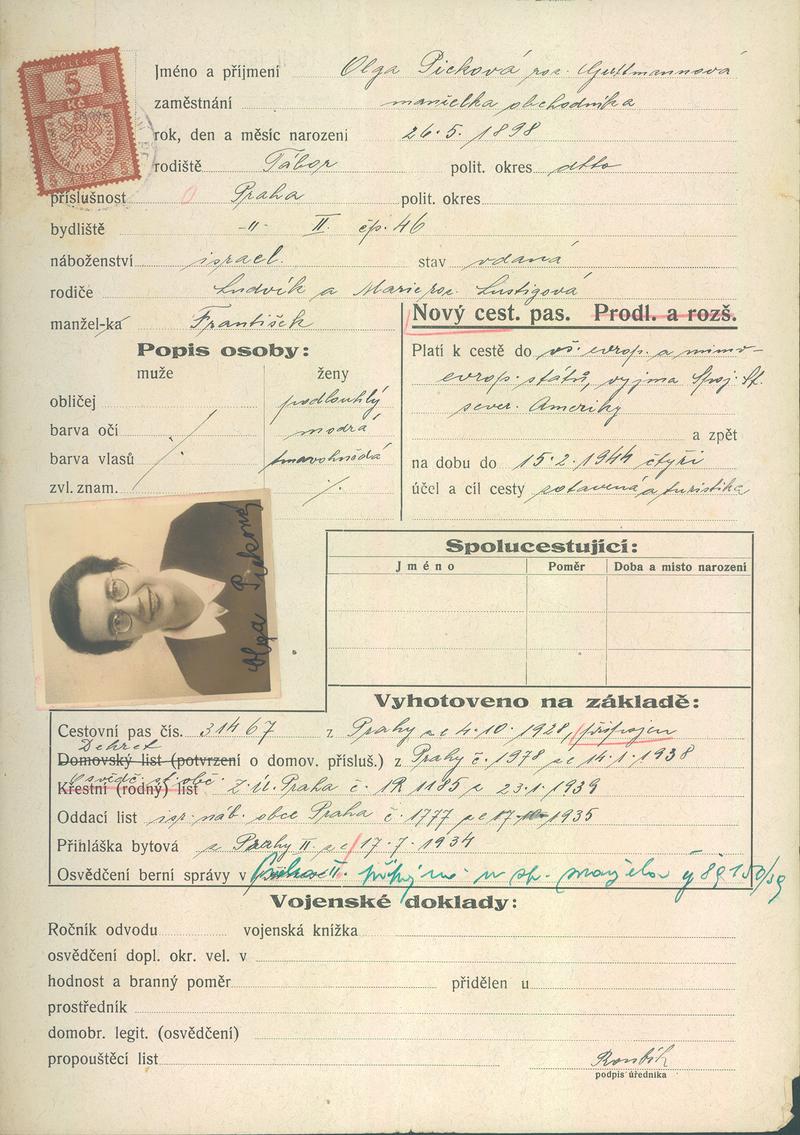 KOLEK
5
Kč
Jméno a příjmení Olga Picková roz. Guttmannová
zaměstnání manželka obchodníka
rok, den a měsíc narození 26.5.1898
rodiště Tábor polit. okres dtto
příslušnost Praha polit. okres
bydliště -"- II. čp. 46
náboženství israel. stav vdaná
rodiče Ludvík a Marie roz. Lustigová
manžel-ka František
Nový cest. pas. Prodl. a rozš.
Popis osoby:
muže ženy
obličej podlouhlý
barva očí modrá
barva vlasů tmavohnědá
zvl. znam. ./.
Platí k cestě do vš. evrop. a mimo-
evrop. států, vyjma Spoj. St.
sever. Ameriky
a zpět
na dobu do 15.2.1944 čtyři
účel a cíl cesty zotavená a turistika
Olga Picková
Spolucestující:
Jméno Poměr Doba a misto narození
Vyhotoveno na základě:
Cestovní pas čís. 31467 z Prahy ze 4.10.1928, připojen
Dekret
Domovský list (potvrzení o domov. přísluš.) z Prahy č. 1978 ze 14.1.1938
Osvědč. st. obč.
Křestní (rodný) list Z.Ú. Praha č. 1R 1185 z 23.1.1939
Oddací list isr. náb. obce Praha č. 1777 ze 17. 1935
Přihláška bytová z Prahy II. ze 17.7.1934
Osvědčení berní správy v Praha II. připojeno u sp. manžela
Vojenské doklady:
Ročník odvodu vojenská knížka
osvědčení dopl. okr. vel. v
hodnost a branný poměr přidělen u
prostředník
domobr. legit. (osvědčení)
propouštěcí list
podpis úředníka